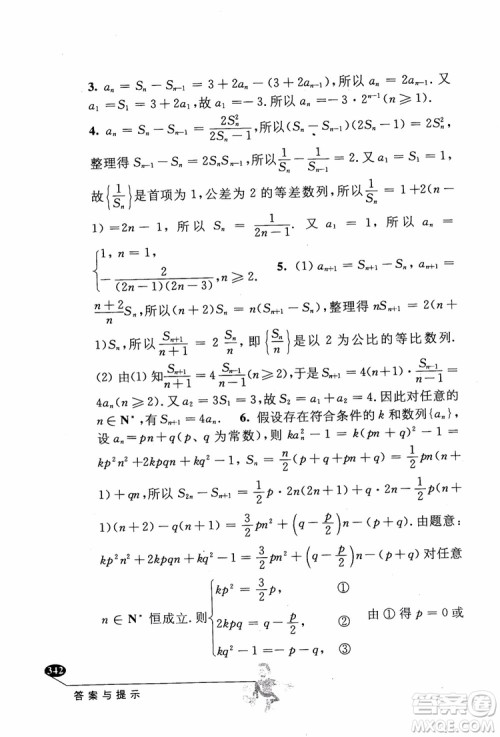 3. aₙ = Sₙ − Sₙ₋₁ = 3 + 2aₙ − (3 + 2aₙ₋₁), 所以 aₙ = 2aₙ₋₁. 又
a₁ = S₁ = 3 + 2a₁, 故 a₁ = −3. 所以 aₙ = −3 × 2ⁿ⁻¹ (n ⩾ 1).
4. aₙ = Sₙ − Sₙ₋₁ = 2Sₙ²/(2Sₙ − 1), 所以 (Sₙ − Sₙ₋₁)(2Sₙ − 1) = 2Sₙ²,
整理得 Sₙ₋₁ − Sₙ = 2SₙSₙ₋₁, 所以 1/Sₙ − 1/Sₙ₋₁ = 2. 又 1/S₁ = 1/a₁ = 1,
故{1/Sₙ}是首项为 1, 公差为 2 的等差数列, 所以 1/Sₙ = 1 + 2(n −
1) = 2n − 1, 所以 Sₙ = 1/(2n − 1). 又 a₁ = 1, 所以 aₙ =
{1, n = 1
−2/((2n − 1)(2n − 3)), n ⩾ 2. 5. (1) aₙ₊₁ = Sₙ₊₁ − Sₙ, aₙ₊₁ =
(n + 2)/n Sₙ, 所以 (n + 2)Sₙ = n(Sₙ₊₁ − Sₙ), 整理得 nSₙ₊₁ = 2(n +
1)Sₙ, 所以 Sₙ₊₁/(n + 1) = 2 Sₙ/n, 即{Sₙ/n}是以 2 为公比的等比数列.
(2) 由(1)知 Sₙ₊₁/(n + 1) = 4 Sₙ₋₁/(n − 1) (n ⩾ 2), 所以 Sₙ₊₁ = 4(n + 1) Sₙ₋₁/(n − 1) =
4aₙ (n ⩾ 2). 又 a₂ = 3S₁ = 3, 故 S₂ = a₁ + a₂ = 4. 因此对任意的
n ∈ N*, 有 Sₙ₊₁ = 4aₙ. 6. 假设存在符合条件的 k 和数列{aₙ},
设 aₙ = pn + q (p, q 为常数), 则 kaₙ² − 1 = k(pn + q)² − 1 =
kp²n² + 2kpqn + kq² − 1. 又 Sₙ = n/2(a₁ + aₙ) = 1/2 p · n(n +
1) + qn, 所以 S₂ₙ − Sₙ₊₁ = 1/2 p · 2n(2n + 1) + 2qn − 1/2 p · (n +
1)(n + 2) − q(n + 1) = 3/2 pn² + (q − p/2)n − (p + q). 由题意:
kp²n² + 2kpqn + kq² − 1 = 3/2 pn² + (q − p/2)n − (p + q) 对任意
n ∈ N* 恒成立. 则 {kp² = 3/2 p, ①
2kpq = q − p/2, ②
kq² − 1 = −(p + q). ③
由①得 p = 0 或
342
答案与提示